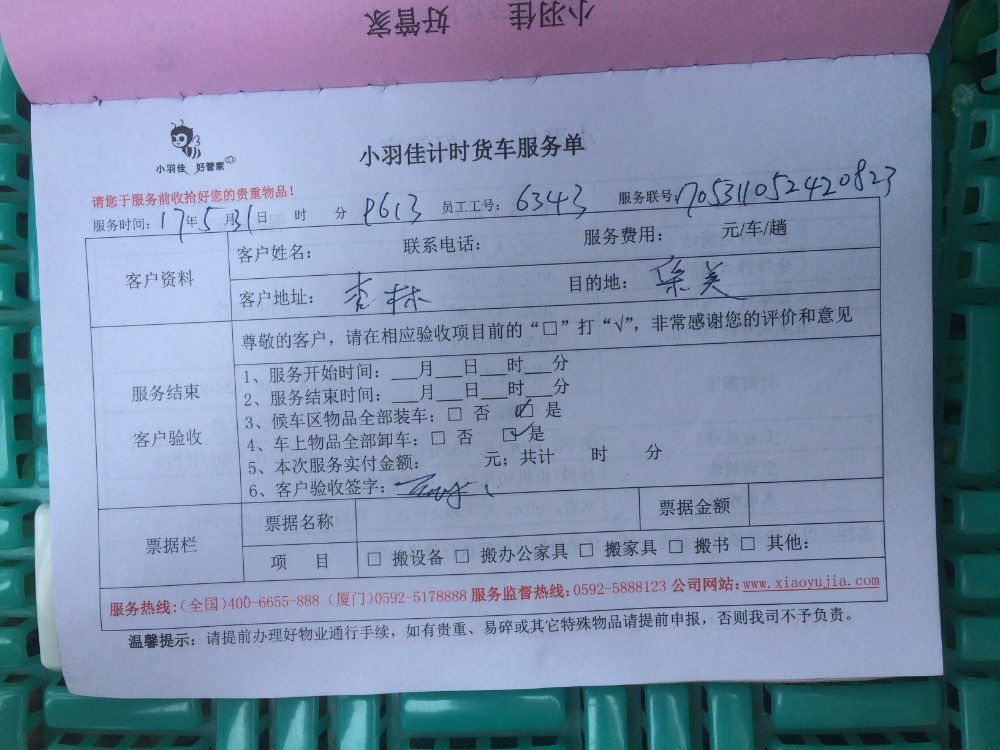 小羽佳 好管家
小羽佳 好管家
小羽佳计时货车服务单
请您于服务前收拾好您的贵重物品！
服务时间：17年5月31日 时 分 P613 员工工号：6343 服务联号：1705311052420823
客户资料
客户姓名： 联系电话： 服务费用： 元/车/趟
客户地址：杏林 目的地：集美
尊敬的客户，请在相应验收项目前的“□”打“√”，非常感谢您的评价和意见
服务结束
客户验收
1、服务开始时间：___月___日___时___分
2、服务结束时间：___月___日___时___分
3、候车区物品全部装车：□ 否 ☑ 是
4、车上物品全部卸车：□ 否 ☑ 是
5、本次服务实付金额： 元；共计 时 分
6、客户验收签字：
票据栏
票据名称 票据金额
项 目 □ 搬设备 □ 搬办公家具 □ 搬家具 □ 搬书 □ 其他：
服务热线：(全国)400-6655-888 (厦门)0592-5178888 服务监督热线：0592-5888123 公司网站：www.xiaoyujia.com
温馨提示：请提前办理好物业通行手续，如有贵重、易碎或其它特殊物品请提前申报，否则我司不予负责。